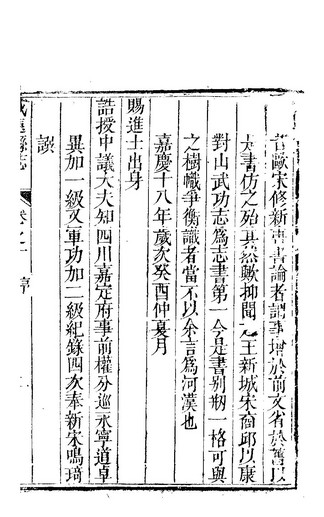 昔歐宋修新唐書論者謂事增於前文省於舊以
是書仿之殆其然歟抑聞之王新城宋商邱以康
對山武功志爲志書第一今是書别剏一格可與
之樹幟爭衡識者當不以余言爲河漢也
嘉慶十八年歲次癸酉仲夏月
賜進士出身
誥授中議大夫知四川嘉定府事前權分巡永寧道卓
異加一級又軍功加二級紀錄四次奉新宋鳴琦
譔
縣志
卷之一
序